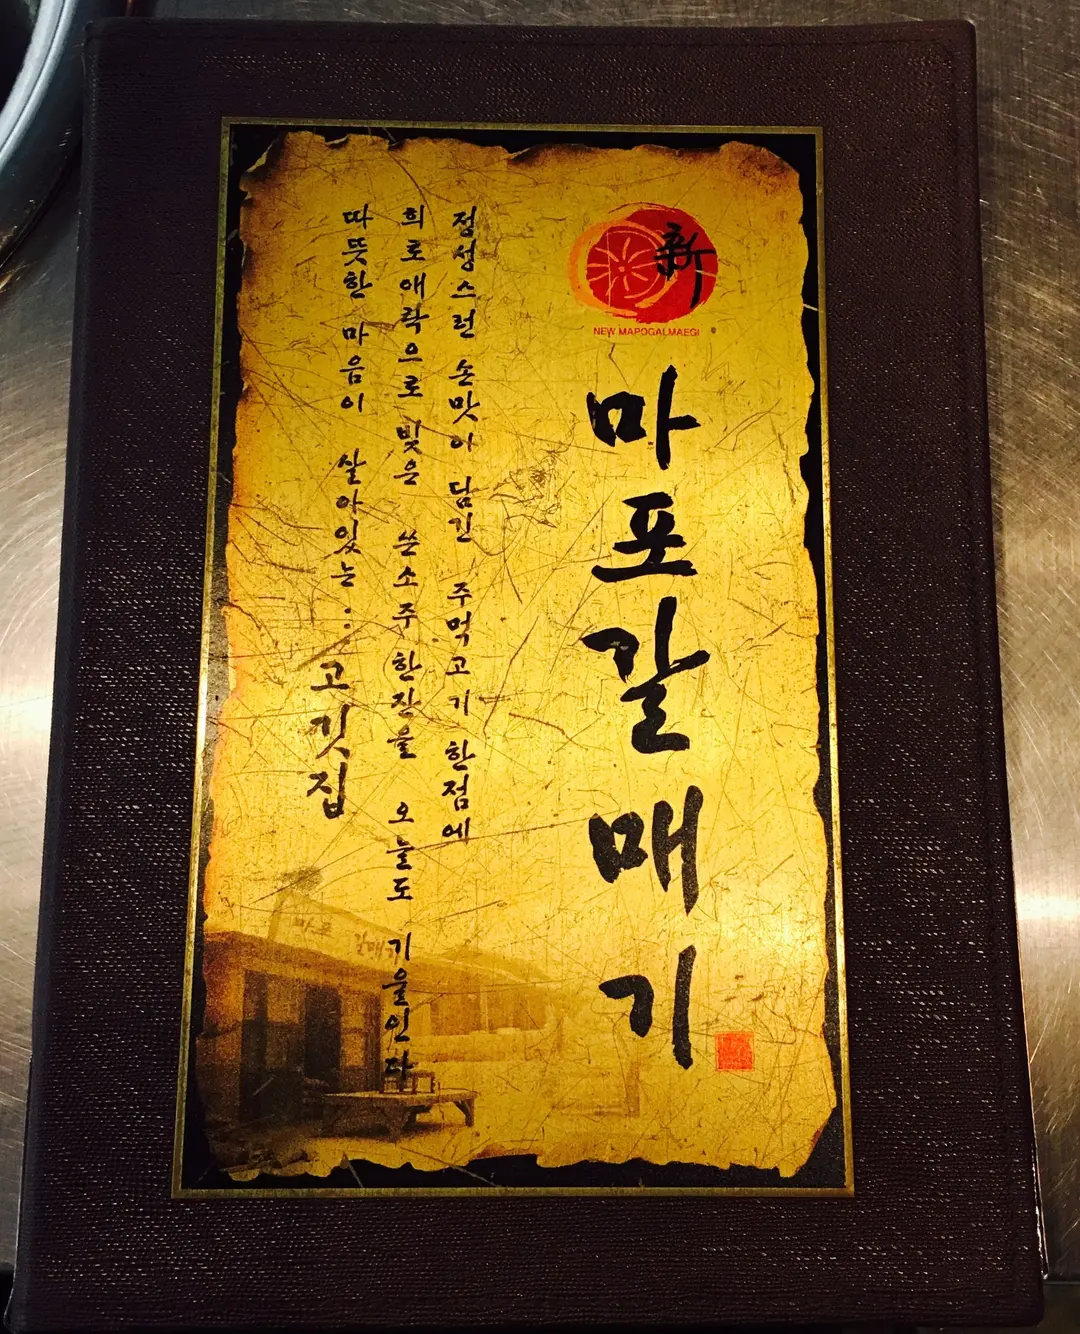 新
NEW MAPOGALMAEGI
마포갈매기
정성스런 손맛이 담긴 주먹고기 한점에
희로애락으로 빚은 쓴소주 한잔을 오늘도 기울인다
따뜻한 마음이 살아있는: 고깃집
마포 갈매기